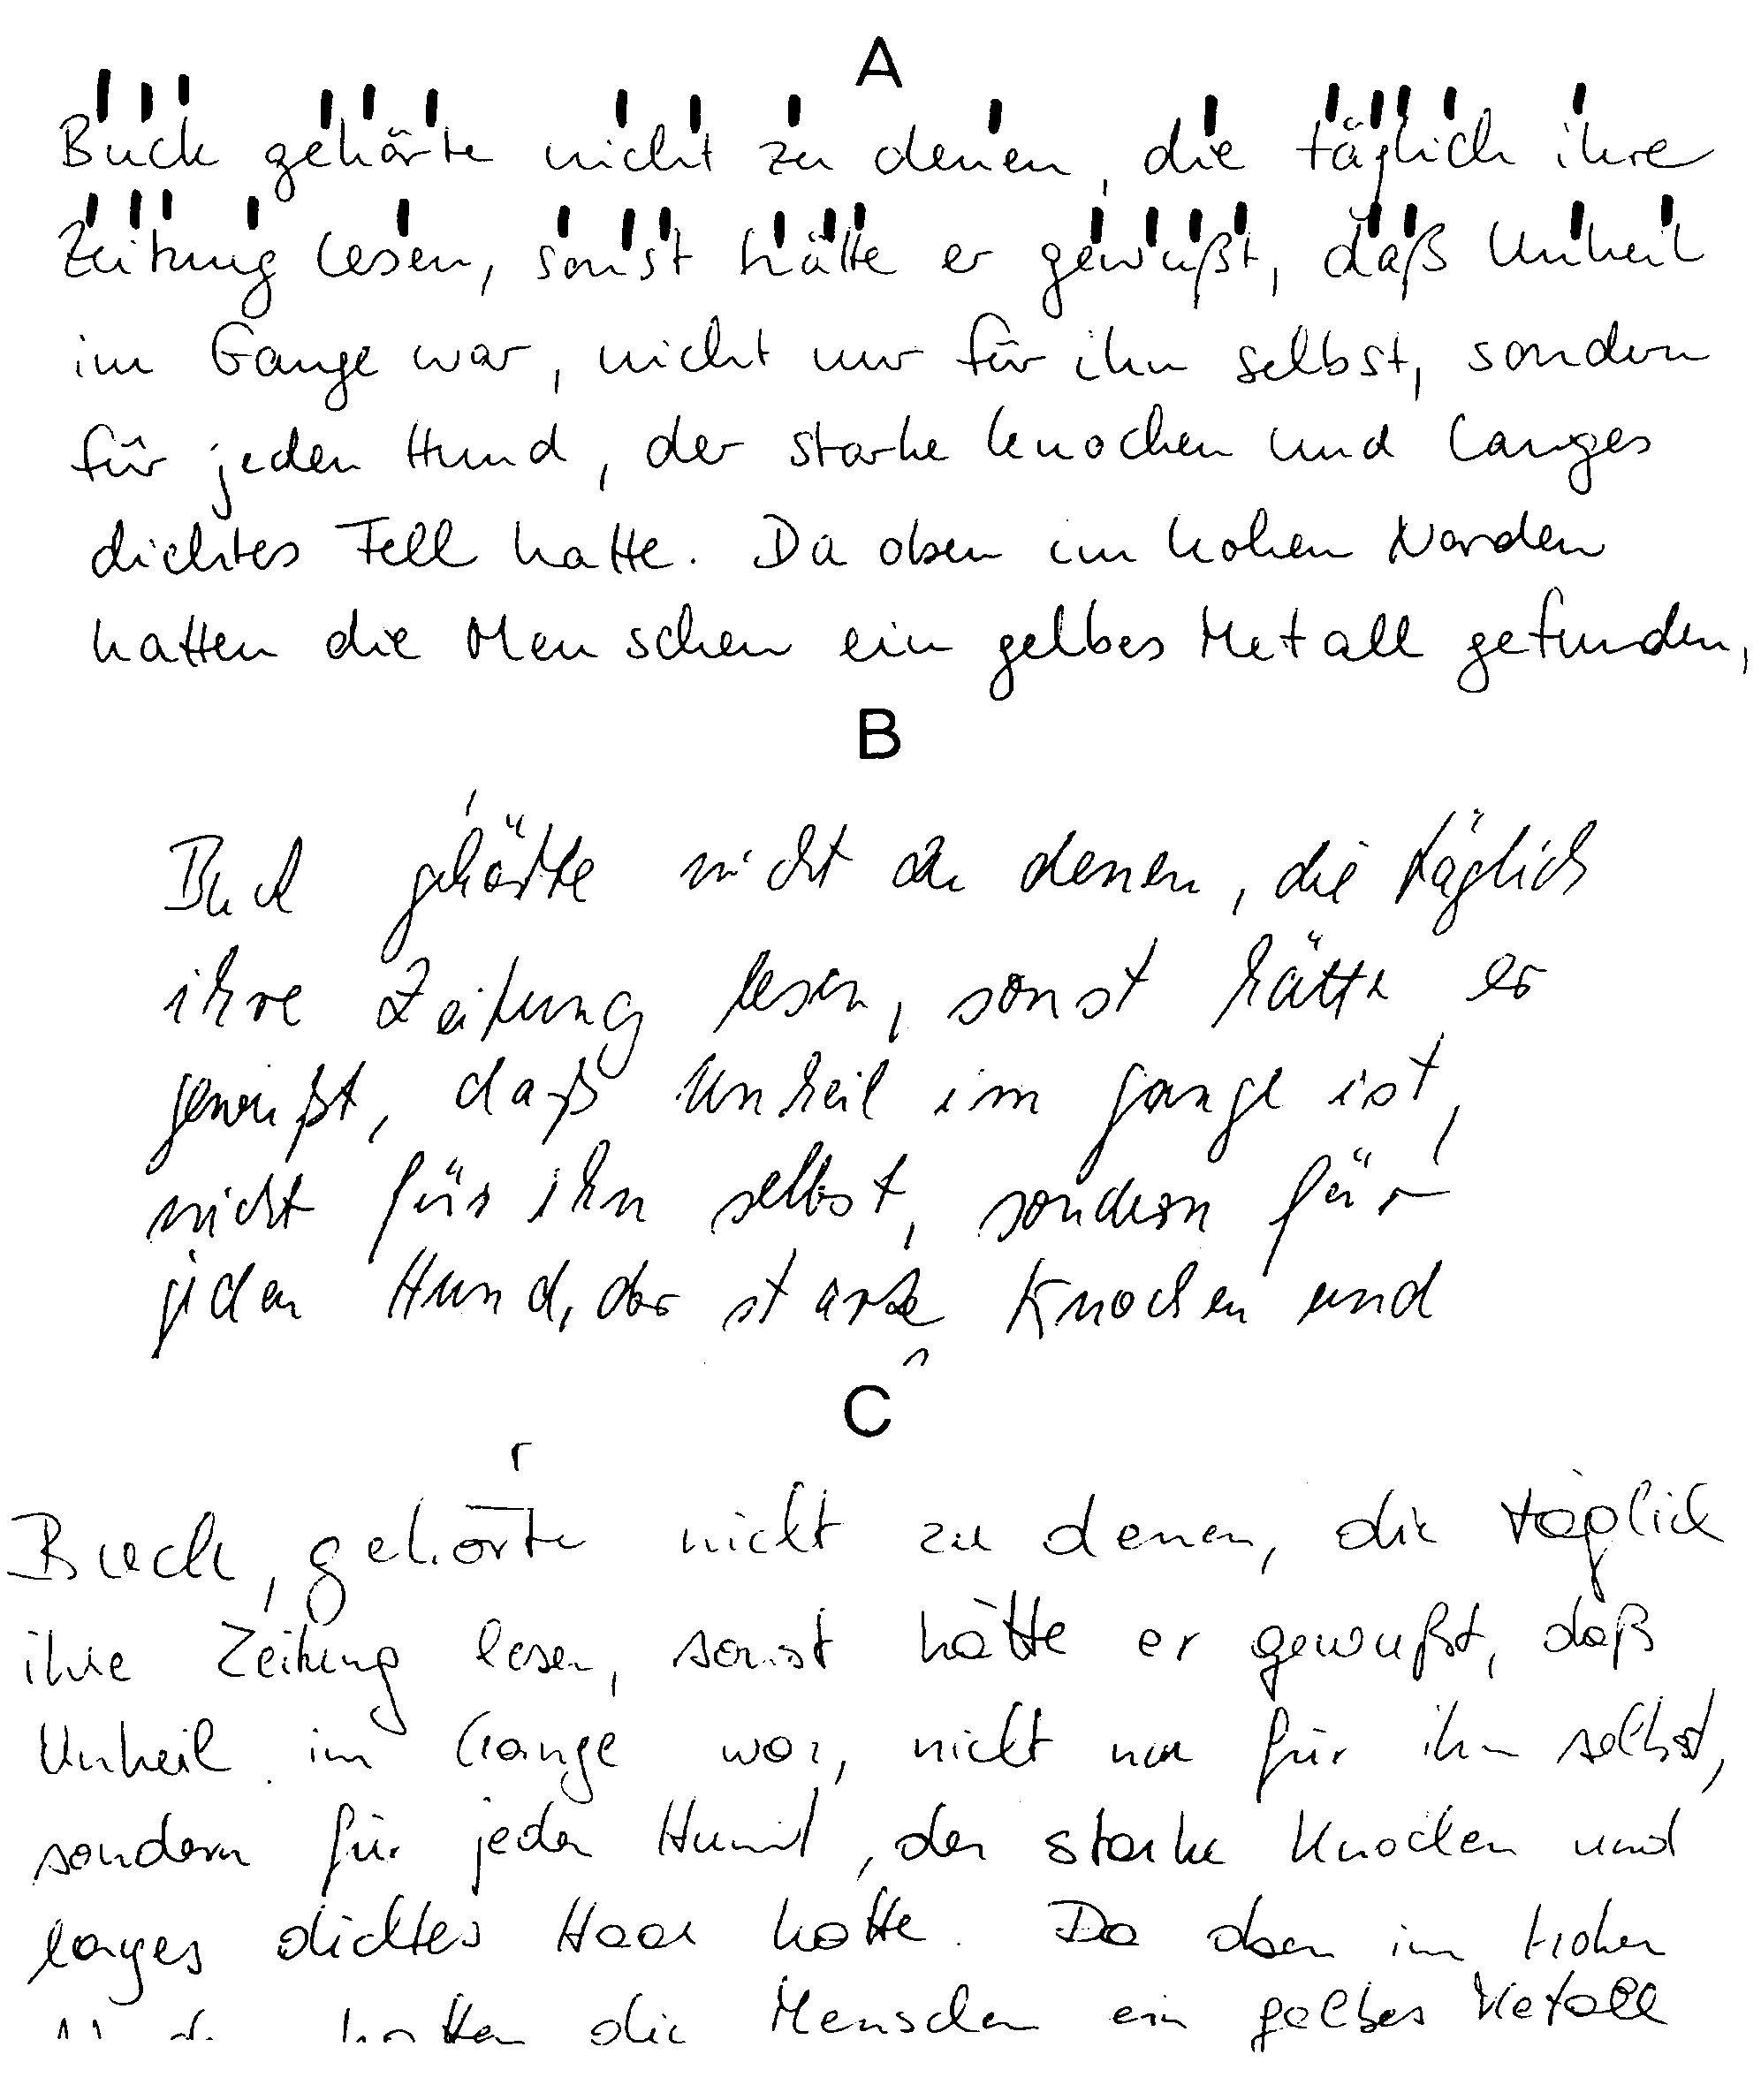 A
Buck gehörte nicht zu denen, die täglich ihre
Zeitung lesen, sonst hätte er gewußt, daß Unheil
im Gange war, nicht nur für ihn selbst, sondern
für jeden Hund, der starke Knochen und langes
dichtes Fell hatte. Da oben im hohen Norden
hatten die Menschen ein gelbes Metall gefunden,
B
Buck gehörte nicht zu denen, die täglich
ihre Zeitung lesen, sonst hätte er
gewußt, daß Unheil im gange ist,
nicht für ihn selbst, sondern für
jeden Hund, der starke Knochen und
C
Buck, gehörte nicht zu denen, die täglich
ihre Zeitung lesen, sonst hätte er gewußt, daß
Unheil im Gange war, nicht nur für ihn selbst,
sondern für jeden Hund, der starke Knochen und
langes dichtes Haar hatte. Da oben im hohen
hatten die Menschen ein gelbes Metall